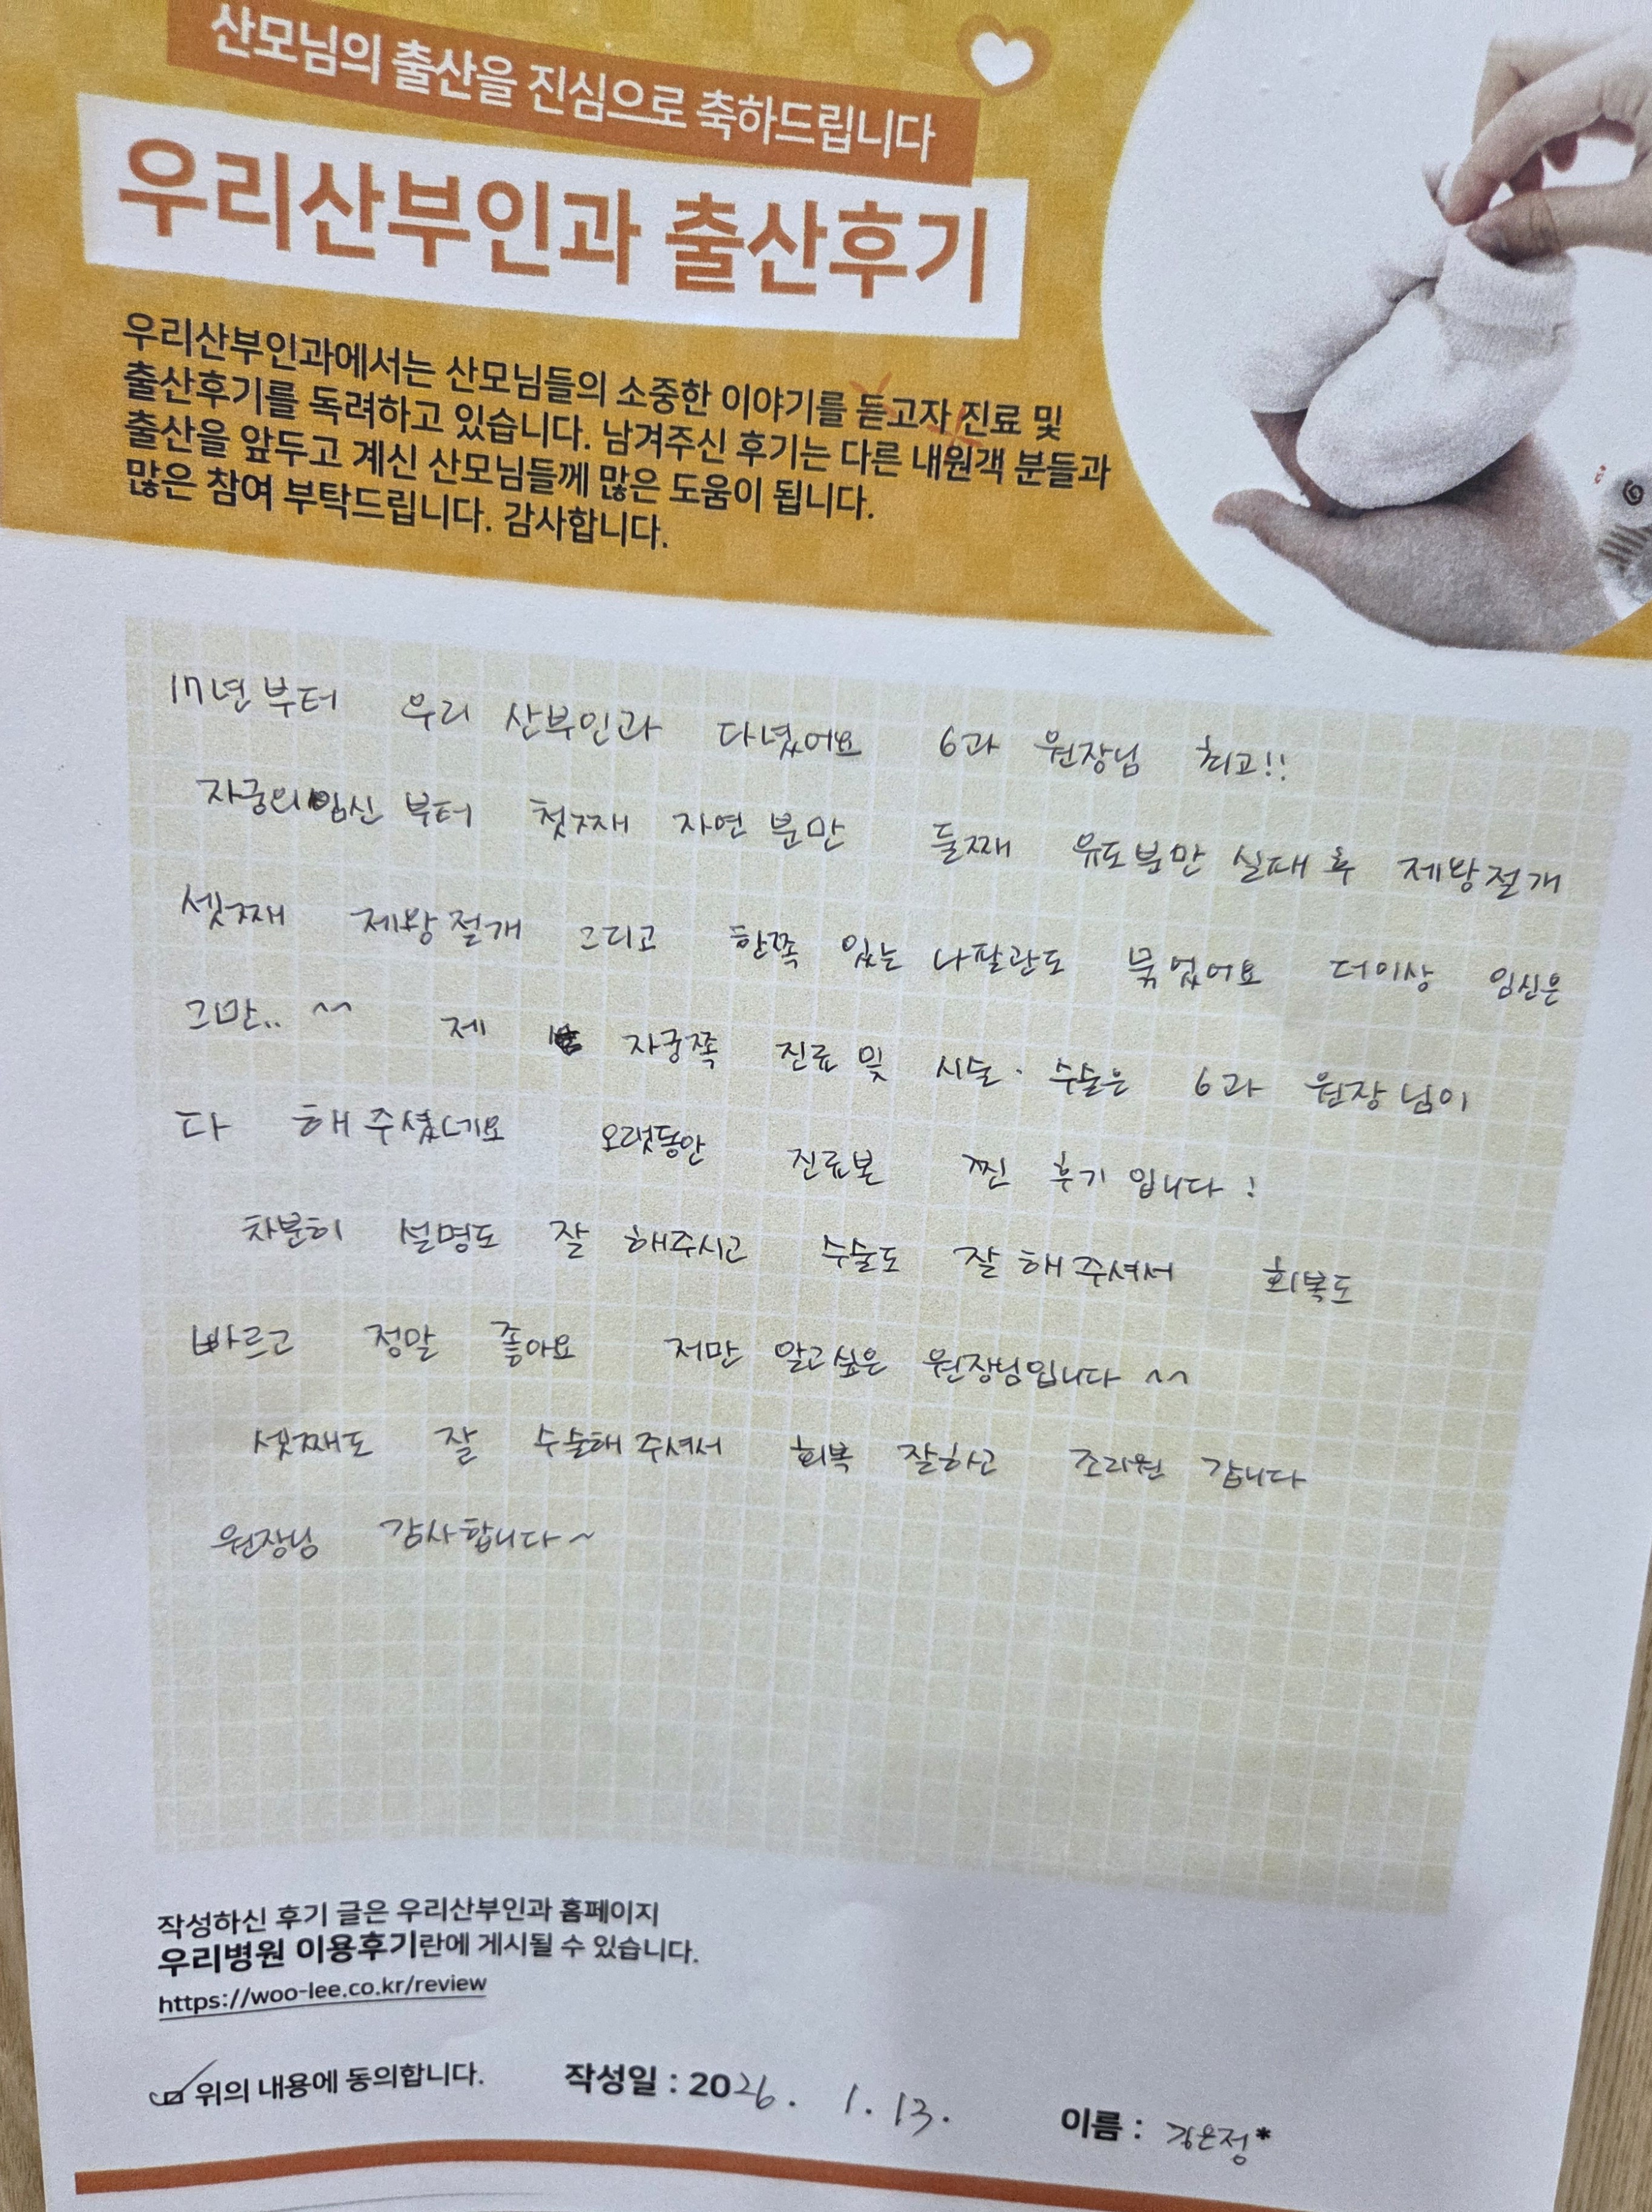 산모님의 출산을 진심으로 축하드립니다
우리산부인과 출산후기
우리산부인과에서는 산모님들의 소중한 이야기를 듣고자 진료 및
출산후기를 독려하고 있습니다. 남겨주신 후기는 다른 내원객 분들과
출산을 앞두고 계신 산모님들께 많은 도움이 됩니다.
많은 참여 부탁드립니다. 감사합니다.
17년부터 우리 산부인과 다녔어요 6과 원장님 최고!!
자궁외임신 부터 첫째 자연분만 둘째 유도분만 실패 후 제왕절개
셋째 제왕절개 그리고 한쪽 있는 나팔관도 묶었어요 더이상 임신은
그만.. ~~ 제 자궁쪽 진료 및 시술 · 수술은 6과 원장님이
다 해주셨네요 오랫동안 진료본 찐 후기 입니다!
차분히 설명도 잘 해주시고 수술도 잘 해주셔서 회복도
빠르고 정말 좋아요 저만 알고싶은 원장님입니다 ~~
셋째도 잘 수술해 주셔서 회복 잘하고 조리원 갑니다
원장님 감사합니다~
작성하신 후기 글은 우리산부인과 홈페이지
우리병원 이용후기란에 게시될 수 있습니다.
https://woo-lee.co.kr/review
위의 내용에 동의합니다. 작성일 : 2026. 1. 13. 이름 : 김은정*